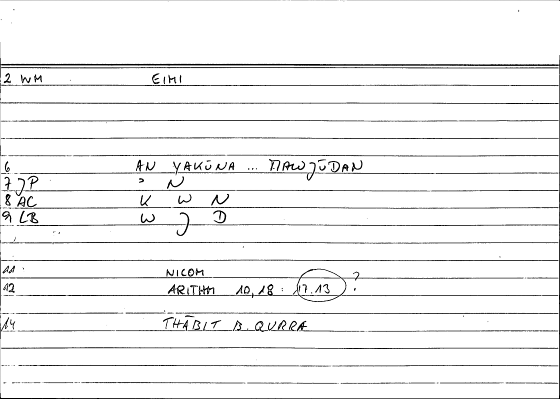 2 WM EIMI
6 AN YAKŪNA ... MAWJŪDAN
7 JP ʾ N
8 AC K W N
9 LB W J D
11 NICOM
12 ARITHM 10,18 : 17.13 ?
14 THĀBIT B. QURRA